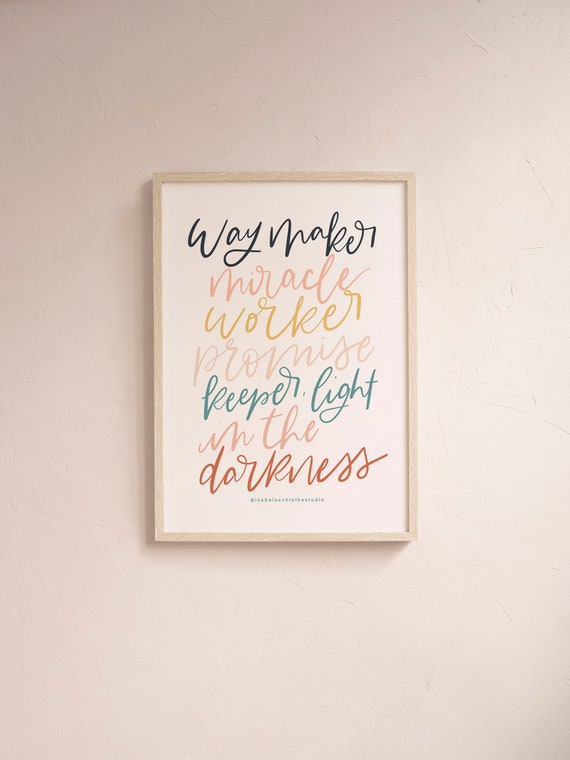 Way maker
miracle
worker
promise
keeper, light
in the
darkness
@isabelaschielkestudio